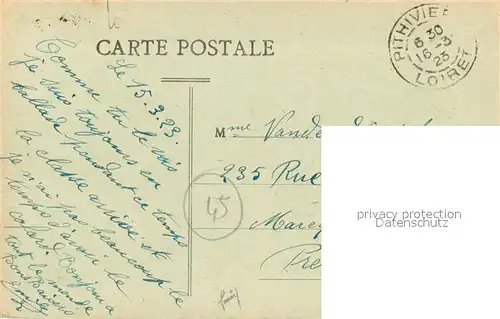 CARTE POSTALE
PITHIVIE
6 30
16 -3
23
LOIRET
Le 15.3.23.
Comme tu le vois
je suis toujours en
ballade pendant ce temps
la classe arrive et
je n'ai pas beaucoup le
temps d'avoir le
cafard. Bonjour a
tout le monde
Mme Vande
235 Rue
45
Marcq
Pre
privacy protection
Datenschutz